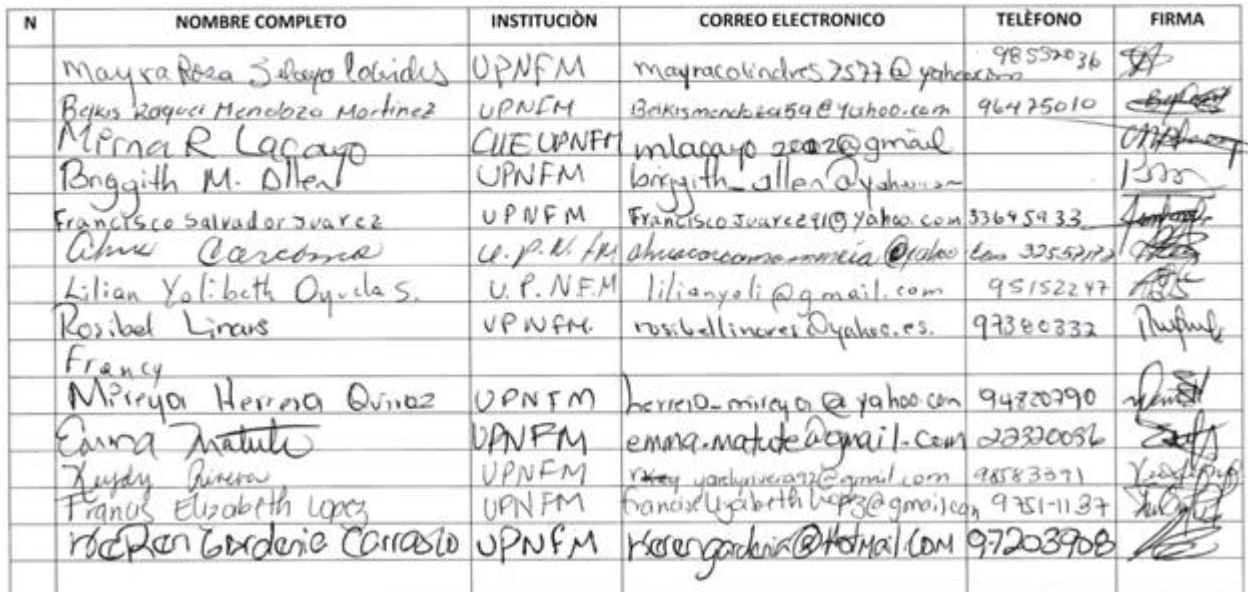 N NOMBRE COMPLETO INSTITUCIÒN CORREO ELECTRONICO TELÈFONO FIRMA
Mayra Rosa UPNFM mayracolindres7577@yahoo.com 98552036
Belkis Raquel Mendoza Martinez UPNFM Belkismendoza59@Yahoo.com 96475010
Mirna R Lacayo CIIE UPNFM mlacayo2002@gmail
Briggith M. Allen UPNFM briggith_allen@yahoo.com
Francisco Salvador Juarez UPNFM FranciscoJuarez91@yahoo.com 33645933
Carcamo U.P.N.FM
Lilian Yolibeth Oyuela S. U.P.N.F.M lilianyoli@gmail.com 95152247
Rosibel Linares UPNFM. rosibellinares@yahoo.es. 97380332
Francy
Mireya Herrera Quiroz UPNFM herrera_mireya@yahoo.com 94820790
Emma Matute UPNFM emma.matute@gmail.com 22320056
Rivera UPNFM 98583391
Francis Elizabeth Lopez UPNFM 9751-1137
Keren Gardenia Carrasco UPNFM Kerengardenia@Hotmail.com 97203908